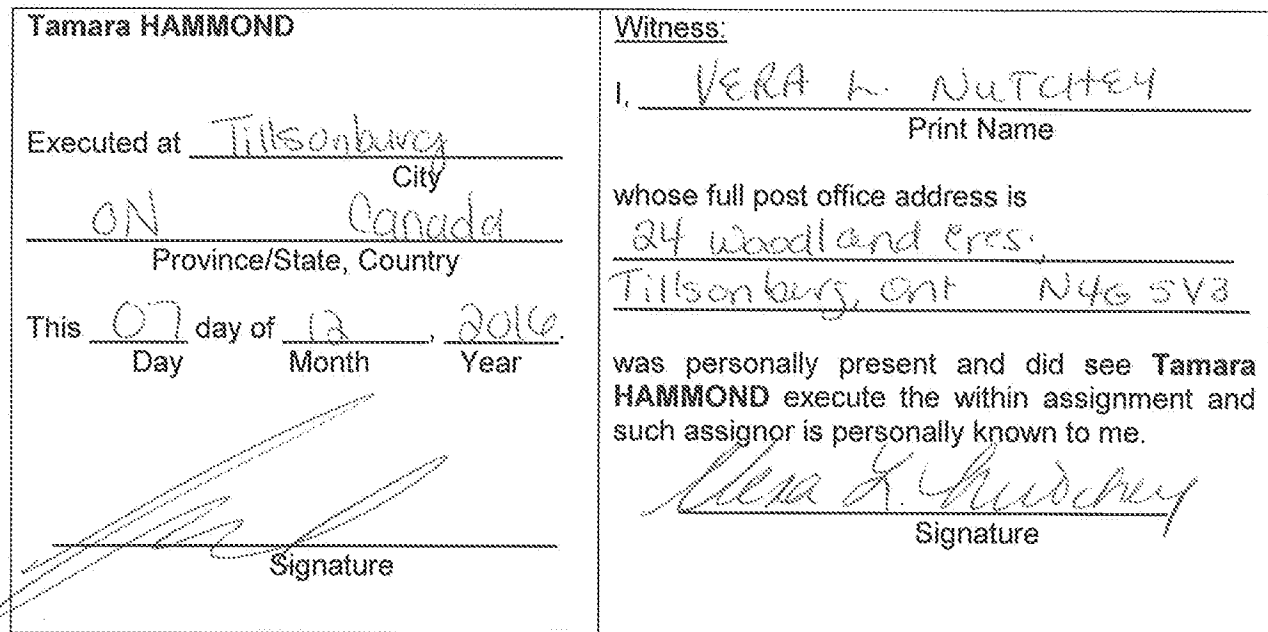 Tamara HAMMOND
Executed at Tillsonburg
City
ON Canada
Province/State, Country
This 07 day of 12, 2016.
Day Month Year
Signature
Witness:
I, VERA L. NUTCHEY
Print Name
whose full post office address is
24 Woodland Cres.
Tillsonburg, Ont N4G 5V3
was personally present and did see Tamara
HAMMOND execute the within assignment and
such assignor is personally known to me.
Vera L. Nutchey
Signature